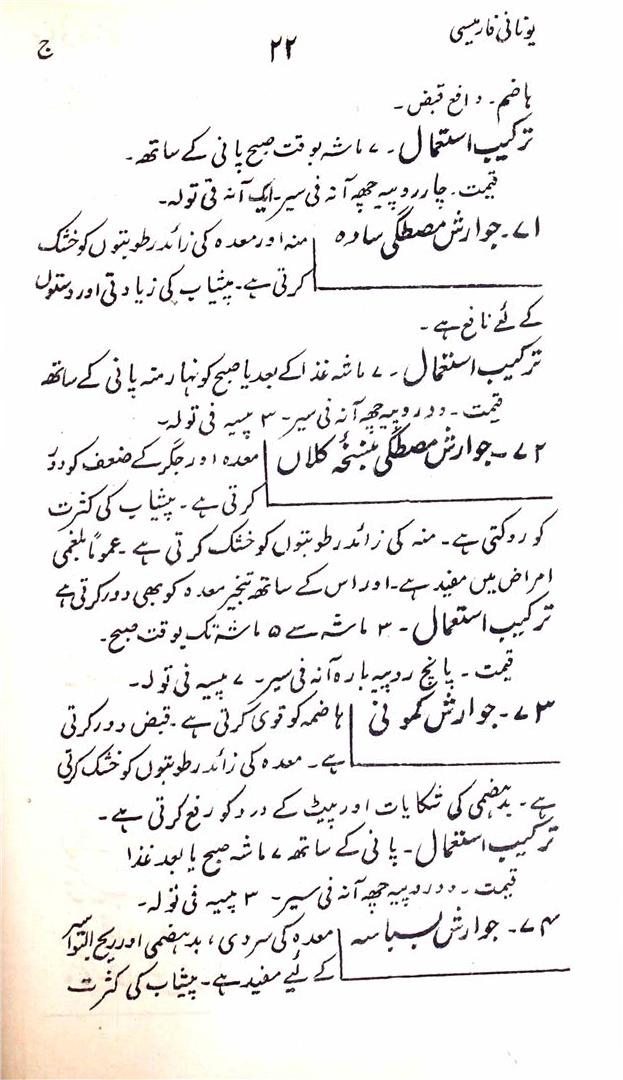 یونانی فارمیسی
۲۲
ج
ہاضم۔ دافع قبض۔
ترکیب استعمال۔ ۷ ماشہ بوقت صبح پانی کے ساتھ۔
قیمت۔ چار روپیہ چھ آنہ فی سیر۔ ایک آنہ فی تولہ۔
۷۱۔ جوارش مصطگی سادہ منہ اور معدہ کی زائد رطوبتوں کو خشک
کرتی ہے۔ پیشاب کی زیادتی اور دستوں
کے لئے نافع ہے۔
ترکیب استعمال۔ ۷ ماشہ غذا کے بعد یا صبح کو نہار منہ پانی کے ساتھ
قیمت۔ دو روپیہ چھ آنہ فی سیر۔ ۳ پیسہ فی تولہ۔
۷۲۔ جوارش مصطگی بنسخہٴ کلاں معدہ اور جگر کے ضعف کو دور
کرتی ہے۔ پیشاب کی کثرت
کو روکتی ہے۔ منہ کی زائد رطوبتوں کو خشک کرتی ہے۔ عموماً بلغمی
امراض میں مفید ہے۔ اور اس کے ساتھ تبخیر معدہ کو بھی دور کرتی ہے
ترکیب استعمال۔ ۳ ماشہ سے ۵ ماشہ تک بوقت صبح۔
قیمت۔ پانچ روپیہ بارہ آنہ فی سیر۔ ۷ پیسہ فی تولہ۔
۷۳۔ جوارش کمونی ہاضمہ کو قوی کرتی ہے۔ قبض دور کرتی
ہے۔ معدہ کی زائد رطوبتوں کو خشک کرتی
ہے۔ بدہضمی کی شکایات اور پیٹ کے درد کو رفع کرتی ہے۔
ترکیب استعمال۔ پانی کے ساتھ ۷ ماشہ صبح یا بعد غذا
قیمت۔ دو روپیہ چھ آنہ فی سیر۔ ۳ پیسہ فی تولہ۔
۷۴۔ جوارش بسباسہ معدہ کی سردی، بدہضمی اور ریح البواسیر
کے لیے مفید ہے۔ پیشاب کی کثرت